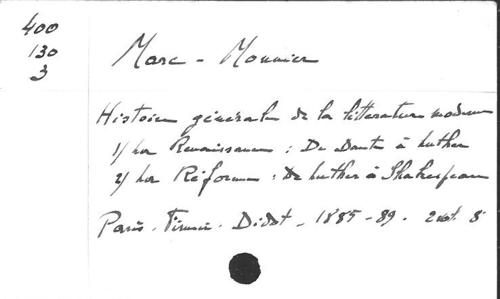 400
130
3
Marc - Monnier
Histoire générale de la littérature moderne
1/ La Renaissance : De Dante à Luther
2/ La Réforme : De Luther à Shakespeare
Paris. Firmin. Didot - 1885-89. 2 vol. 8°